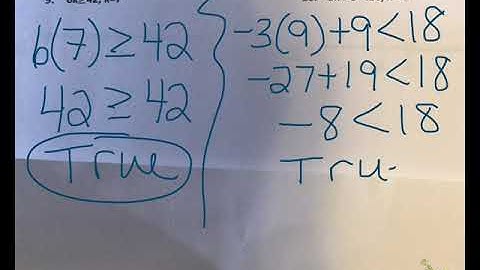 6(7) ≥ 42
42 ≥ 42
True
-3(9)+9<18
-27+19<18
-8<18
Tru